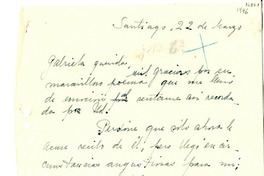 Santiago, 22 de Marzo
1946
Gabriela querida, mil gracias por su
maravilloso poema que me llenó
de emoción por sentirme así recorda
da por Ud.
Perdone que sólo ahora le
acuse recibo de él, pero llegó en cir
cunstancias angustiosas para mí,